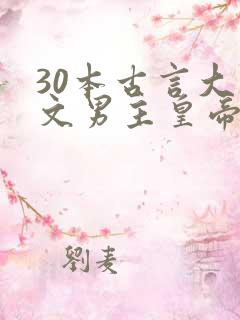 30本古言大
文男主皇帝
劉麦